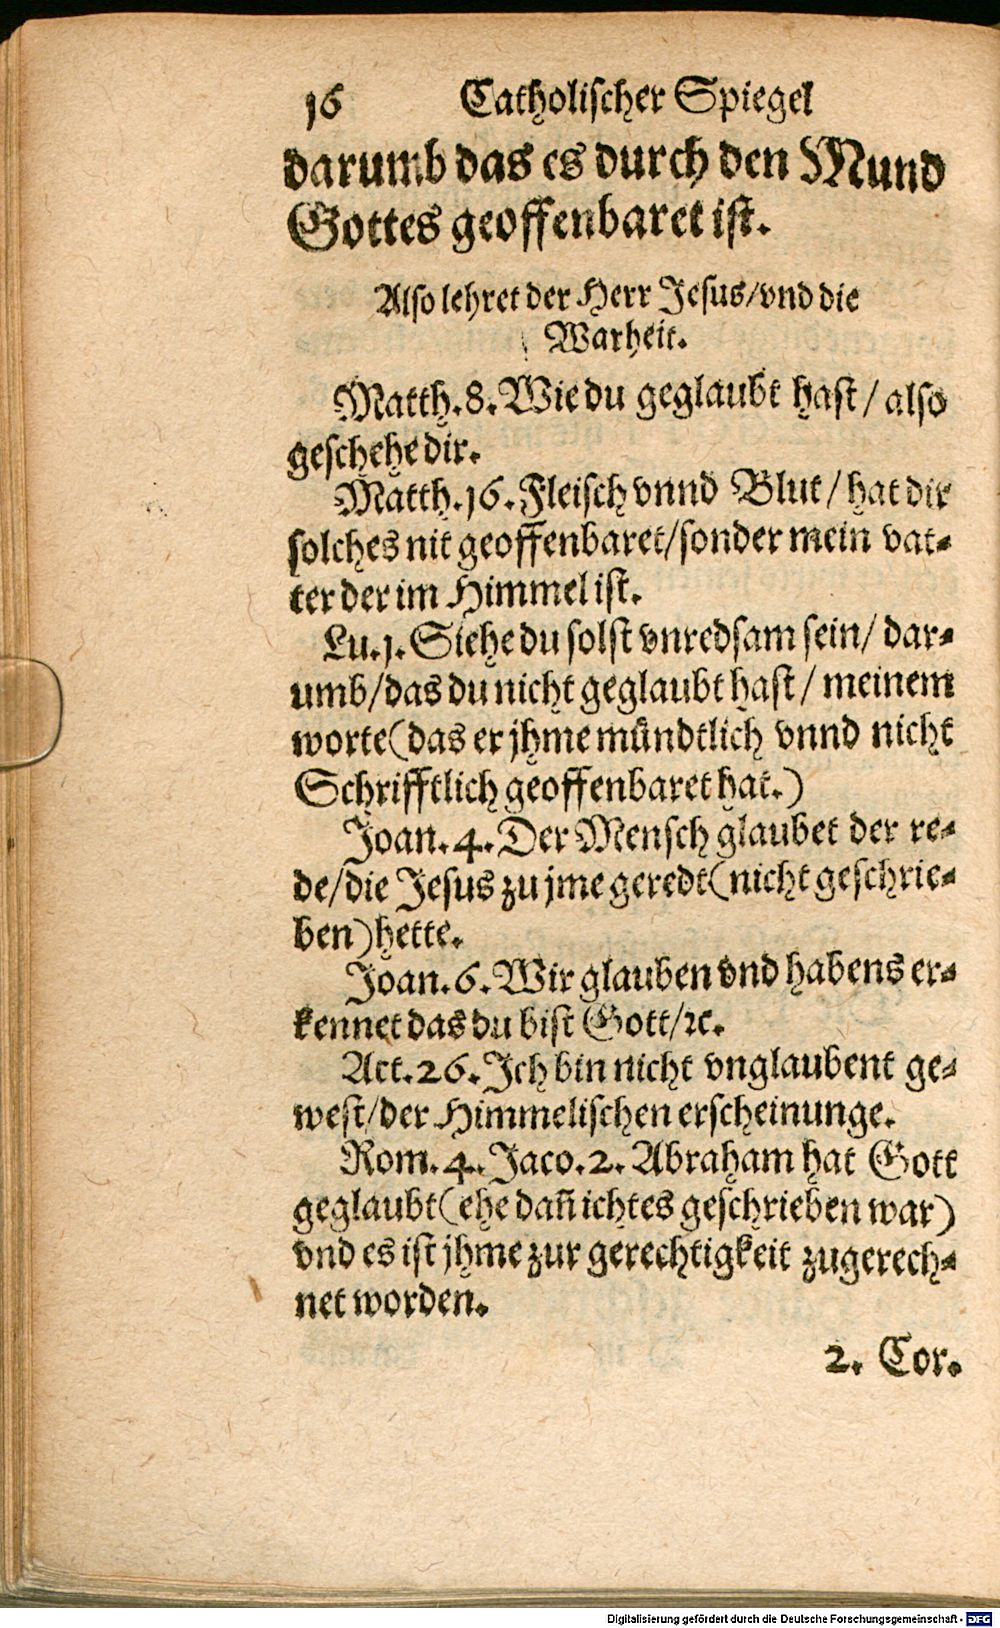 16 Catholischer Spiegel
darumb das es durch den Mund
Gottes geoffenbaret ist.
Also lehret der Herr Jesus/vnd die
Warheit.
Matth.8. Wie du geglaubt hast/also
geschehe dir.
Matth.16. Fleisch vnnd Blut/hat dir
solches nit geoffenbaret/sonder mein vat-
ter der im Himmel ist.
Lu.1. Siehe du solst vnredsam sein/dar-
umb/das du nicht geglaubt hast/meinem
worte(das er jhme mündtlich vnnd nicht
Schrifftlich geoffenbaret hat.)
Joan.4. Der Mensch glaubet der re-
de/die Jesus zu jme geredt(nicht geschrie-
ben)hette.
Joan.6. Wir glauben vnd habens er-
kennet das du bist Gott/ꝛc.
Act.26. Ich bin nicht vnglaubent ge-
west/der Himmelischen erscheinunge.
Rom.4. Jaco.2. Abraham hat Gott
geglaubt(ehe dañ ichtes geschrieben war)
vnd es ist jhme zur gerechtigkeit zugerech-
net worden.
2. Cor.
Digitalisierung gefördert durch die Deutsche Forschungsgemeinschaft - DFG